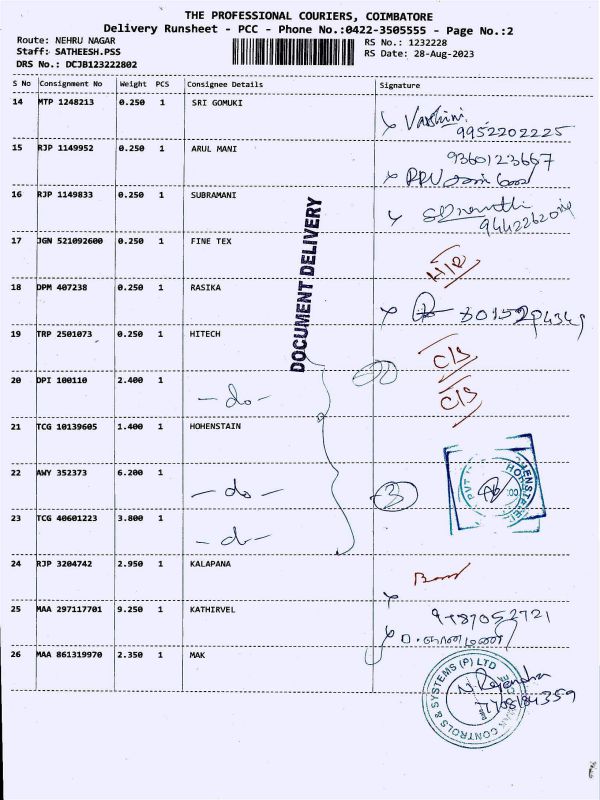 THE PROFESSIONAL COURIERS, COIMBATORE
Delivery Runsheet - PCC - Phone No.:0422-3505555 - Page No.:2
Route: NEHRU NAGAR
RS No.: 1232228
Staff: SATHEESH.PSS
RS Date: 28-Aug-2023
DRS No.: DCJB123222802
S No Consignment No Weight PCS Consignee Details Signature
14 MTP 1248213 0.250 1 SRI GOMUKI
Varshini
9952202225
15 RJP 1149952 0.250 1 ARUL MANI
9360123667
16 RJP 1149833 0.250 1 SUBRAMANI
17 JGN 521092600 0.250 1 FINE TEX
DOCUMENT DELIVERY
18 DPM 407238 0.250 1 RASIKA
19 TRP 2501073 0.250 1 HITECH
C/S
20 DPI 100110 2.400 1
- do -
C/S
21 TCG 10139605 1.400 1 HOHENSTAIN
22 AWY 352373 6.200 1
- do -
3
23 TCG 40601223 3.800 1
- do -
24 RJP 3204742 2.950 1 KALAPANA
25 MAA 297117701 9.250 1 KATHIRVEL
26 MAA 861319970 2.350 1 MAK
CONTROLS & SYSTEMS (P) LTD
N. Rajendra